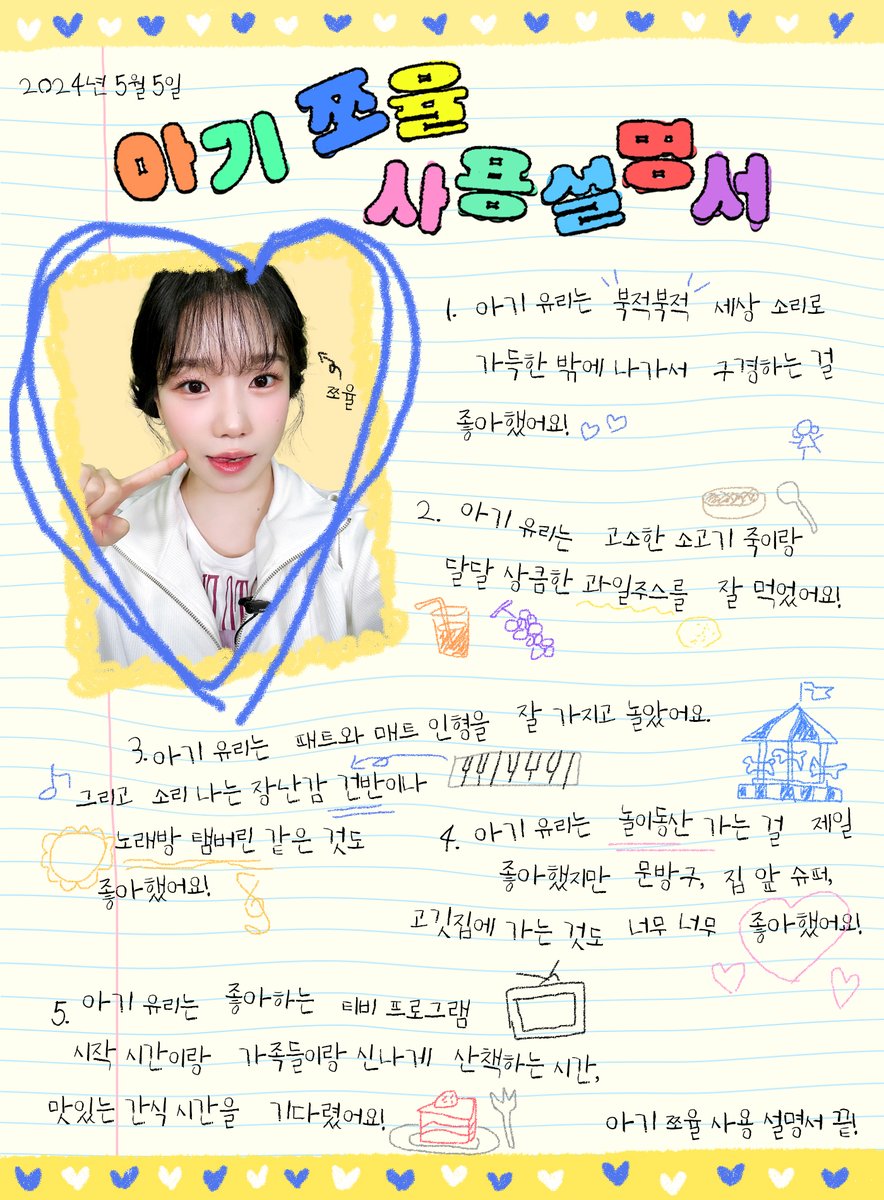 2024년 5월 5일
아기 쪼율
사용설명서
쪼율
1. 아기 유리는 북적북적 세상 소리로
가득한 밖에 나가서 구경하는 걸
좋아했어요!
2. 아기 유리는 고소한 소고기 죽이랑
달달 상큼한 과일주스를 잘 먹었어요!
3. 아기 유리는 패트와 매트 인형을 잘 가지고 놀았어요.
그리고 소리 나는 장난감 건반이나
노래방 탬버린 같은 것도
좋아했어요!
4. 아기 유리는 놀이동산 가는 걸 제일
좋아했지만 문방구, 집 앞 슈퍼,
고깃집에 가는 것도 너무 너무 좋아했어요!
5. 아기 유리는 좋아하는 티비 프로그램
시작 시간이랑 가족들이랑 신나게 산책하는 시간,
맛있는 간식 시간을 기다렸어요!
아기 쪼율 사용 설명서 끝!